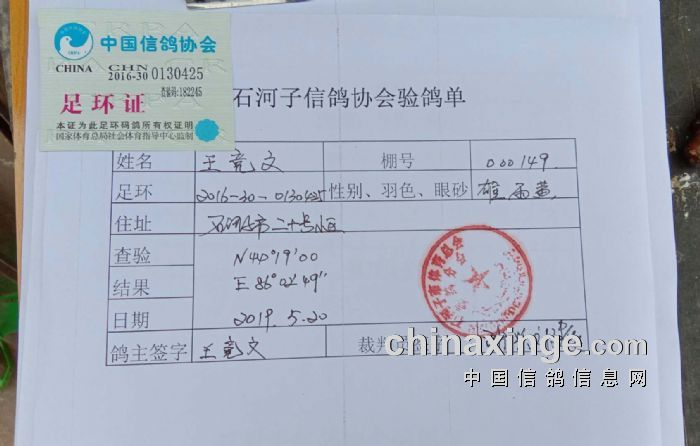 中国信鸽协会
CHINA CHN
2016-30 0130425
足环证 查验码:182245
本证为此足环码鸽所有权证明
国家体育总局社会体育指导中心监制
石河子信鸽协会验鸽单
姓名 王竟文 棚号 000149
足环 2016-30-0130425 性别、羽色、眼砂 雄 雨 黄
住址 石河子市二十号小区
查验 N 44°19′00
结果 E 86°02′49″
日期 2019.5.20
鸽主签字 王竟文 裁判
chinaxinge.com
中国信鸽信息网